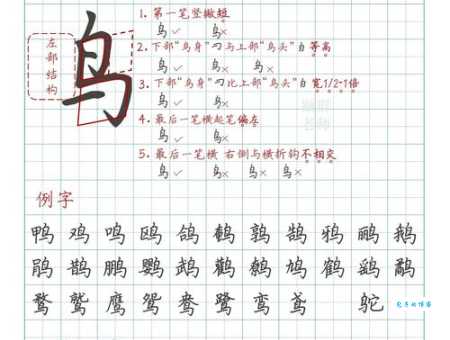 左部结构
鸟
1. 第一笔竖撇短
鸟✓ 鸟×
2. 下部“鸟身”与上部“鸟头”等高
鸟✓ 鸟× 鸟×
3. 下部“鸟身”比上部“鸟头”宽1/2-1倍
鸟✓ 鸟×
4. 最后一笔横起笔偏左
鸟✓ 鸟×
5. 最后一笔横 右侧与横折钩不相交
鸟✓ 鸟× 鸟× 鸟×
例字
鸭 鸡 鸣 鸥 鸽 鹌 鹑 鹄 鸦 鹂 鹅
鹃 鹊 鹏 鹦 鹉 鹳 鸠 鹤 鹞 鹬
鹜 鹫 鹰 鸳 鸯 鹭 鸾 鸢 鸵